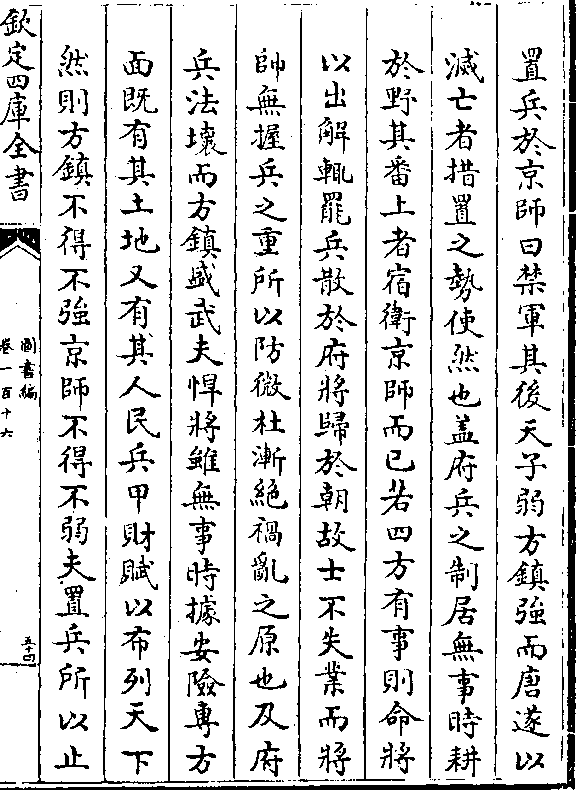 置兵於京師曰禁軍其後天子弱方鎮強而唐遂以
滅亡者措置之勢使然也盖府兵之制居無事時耕
於野其番上者宿衛京師而已若四方有事則命將
以出解輒罷兵散於府將歸於朝故士不失業而將
帥無握兵之重所以防微杜漸絶禍亂之原也及府
兵法壊而方鎮盛武夫悍將雖無事時據安險専方
面既有其土地又有其人民兵甲財賦以布列天下
然則方鎮不得不強京師不得不弱夫置兵所以止
欽定四庫全書
圖書編
卷一百十六
五十四